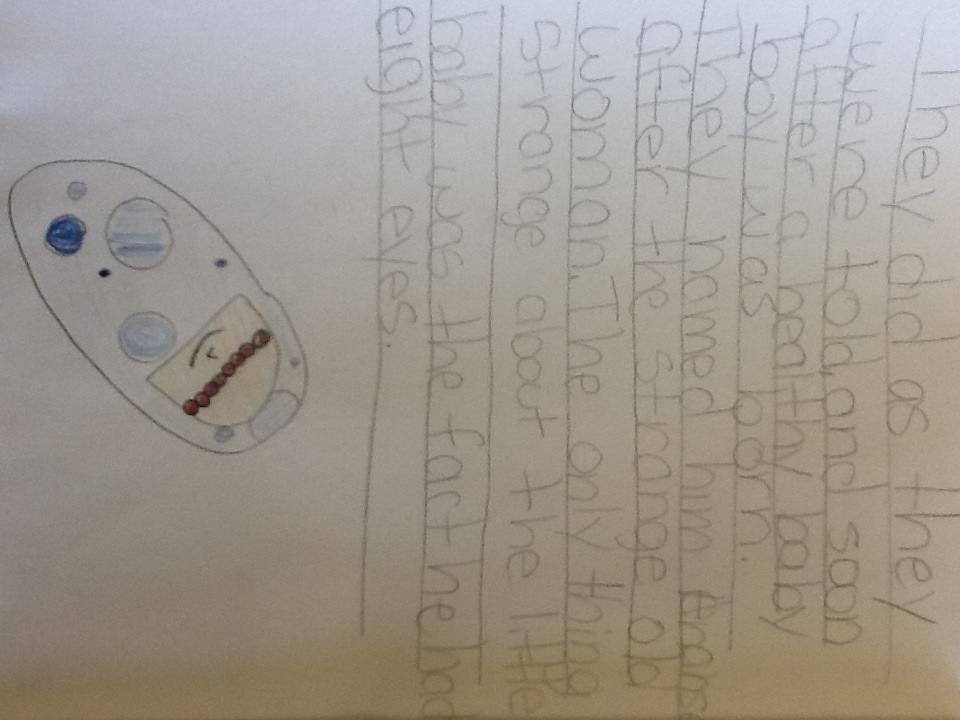 They did as they
were told, and soon
after a healthy baby
boy was born.
They named him
after the strange old
woman. The only thing
strange about the little
baby was the fact he had
eight eyes.